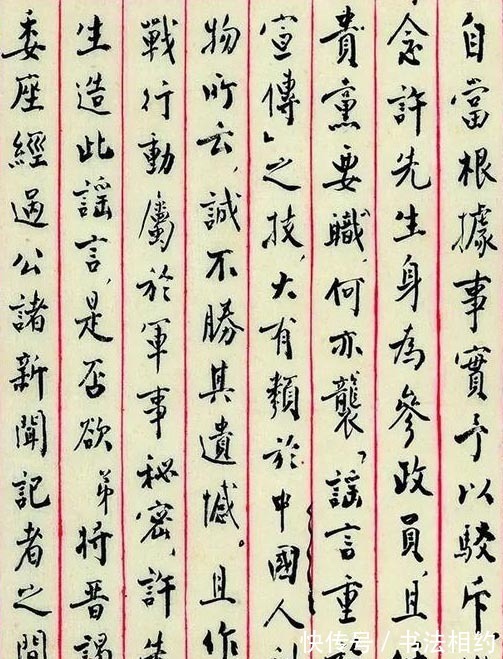 自當根據事實予以駁斥
念許先生身為參政員,且
貴黨要職,何亦襲「謠言重
宣傳」之技,大有類於中國人
物所云,誠不勝其遺憾。且作
戰行動屬於軍事秘密,許
生造此謠言,是否欲弟將晋謁
委座經過公諸新聞記者之間
快传号/书法相约